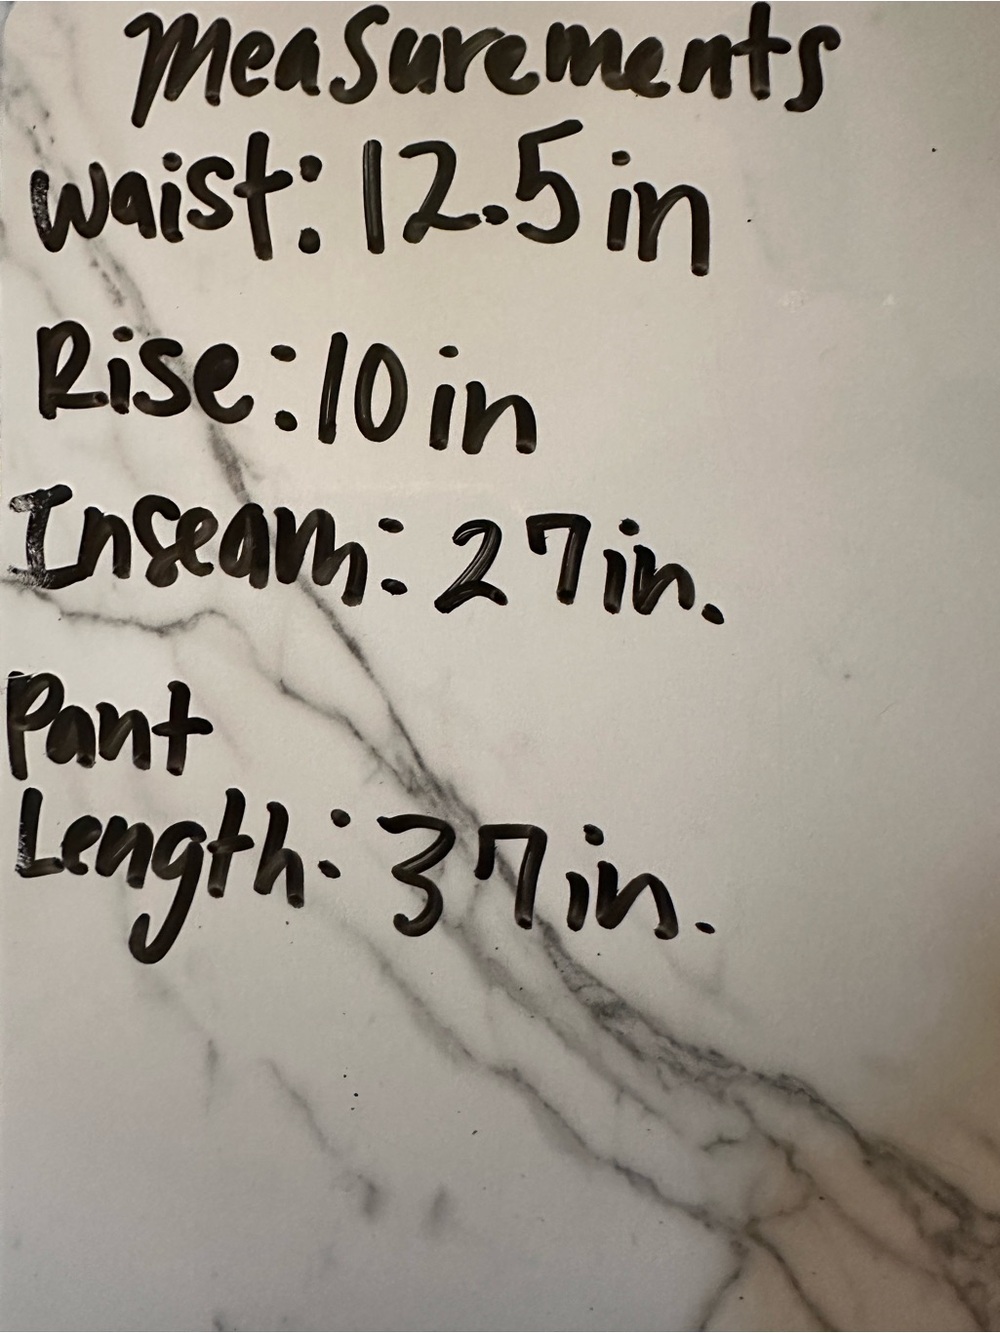 Measurements
Waist: 12.5 in
Rise: 10 in
Inseam: 27 in.
Pant
Length: 37 in.